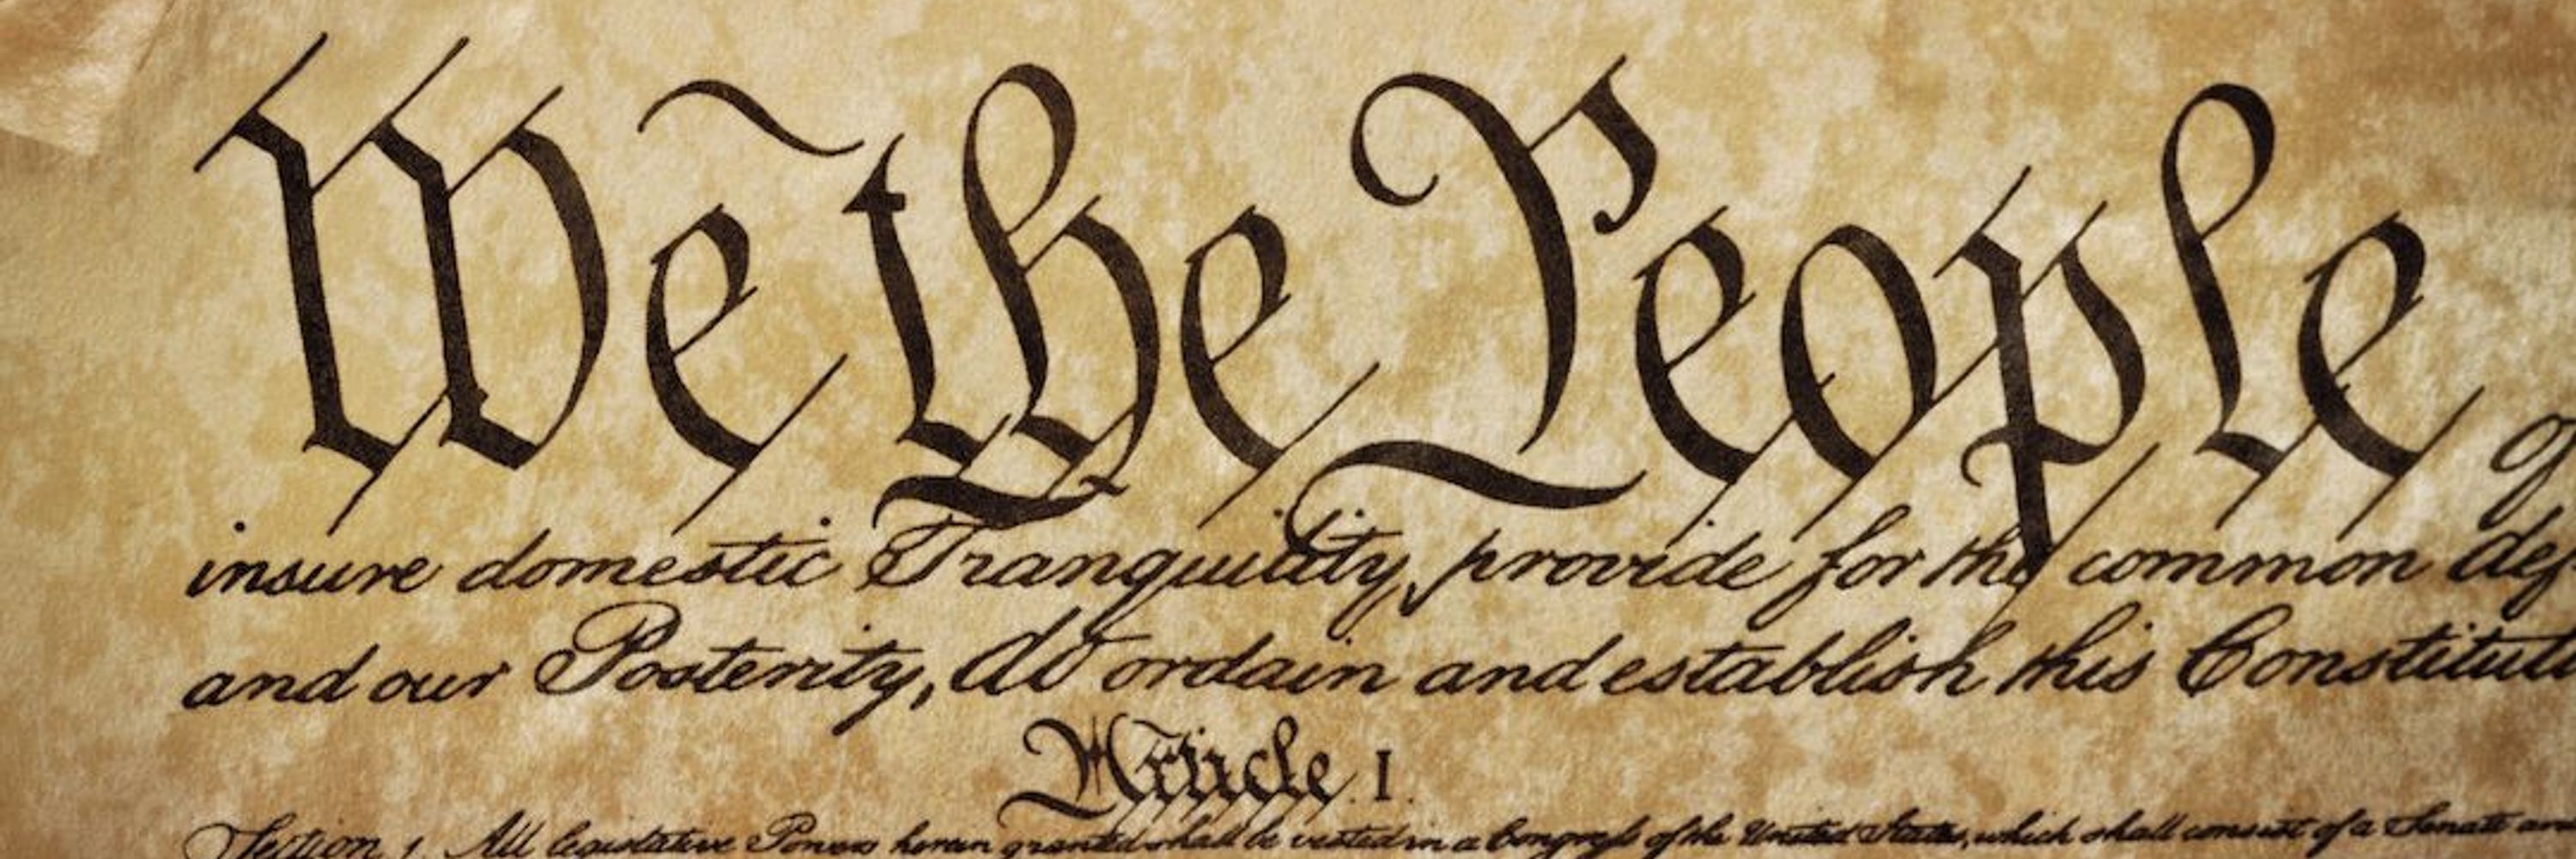 We the People of
insure domestic Tranquility, provide for the common def
and our Posterity, do ordain and establish this Constituti
Article. I.
Section 1. All legislative Powers herein granted shall be vested in a Congress of the United States, which shall consist of a Senate an